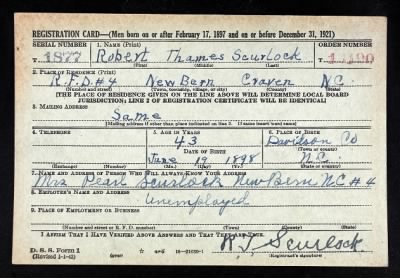 REGISTRATION CARD—(Men born on or after February 17, 1897 and on or before December 31, 1921)
SERIAL NUMBER 1. NAME (Print) ORDER NUMBER
T 1877 Robert Thames Scurlock T
(First) (Middle) (Last)
2. PLACE OF RESIDENCE (Print)
R.F.D. #4 New Bern Craven N.C.
(Number and street) (Town, township, village, or city) (County) (State)
[THE PLACE OF RESIDENCE GIVEN ON THE LINE ABOVE WILL DETERMINE LOCAL BOARD
JURISDICTION; LINE 2 OF REGISTRATION CERTIFICATE WILL BE IDENTICAL]
3. MAILING ADDRESS
Same
[Mailing address if other than place indicated on line 2. If same insert word same]
4. TELEPHONE 5. AGE IN YEARS 6. PLACE OF BIRTH
43 Davidson Co
DATE OF BIRTH (Town or county)
June 19 1898 N.C.
(Exchange) (Number) (Mo.) (Day) (Yr.) (State or country)
7. NAME AND ADDRESS OF PERSON WHO WILL ALWAYS KNOW YOUR ADDRESS
Mrs Pearl Scurlock New Bern N.C. #4
8. EMPLOYER'S NAME AND ADDRESS
Unemployed
9. PLACE OF EMPLOYMENT OR BUSINESS
(Number and street or R. F. D. number) (Town) (County) (State)
I AFFIRM THAT I HAVE VERIFIED ABOVE ANSWERS AND THAT THEY ARE TRUE.
D. S. S. Form 1
(Revised 1-1-42) 16-21630-1
R.T Scurlock
(Registrant's signature)